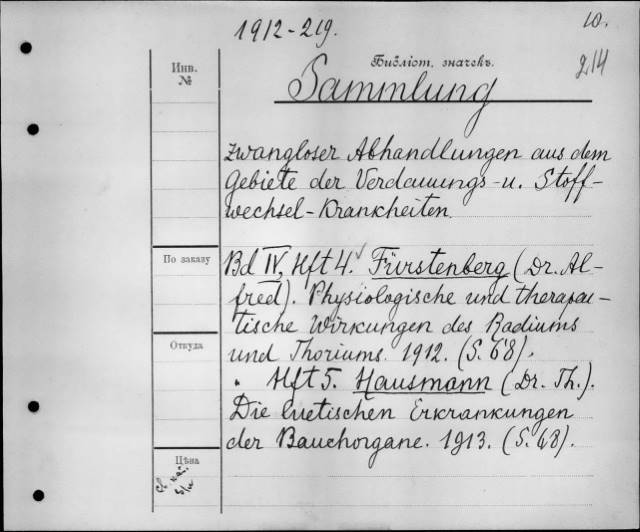 1912-219.
10.
Инв.
№
Библіот. значекъ.
214
Sammlung
zwangloser Abhandlungen aus dem
Gebiete der Verdauungs- u. Stoff-
wechsel-Krankheiten.
По заказу
Bd IV, Hft 4. Fürstenberg (Dr. Al-
fred). Physiologische und therapeu-
tische Wirkungen des Radiums
und Thoriums. 1912. (S. 68).
Откуда
" Hft 5. Hausmann (Dr. Th.).
Die luetischen Erkrankungen
der Bauchorgane. 1913. (S. 48).
Цѣна